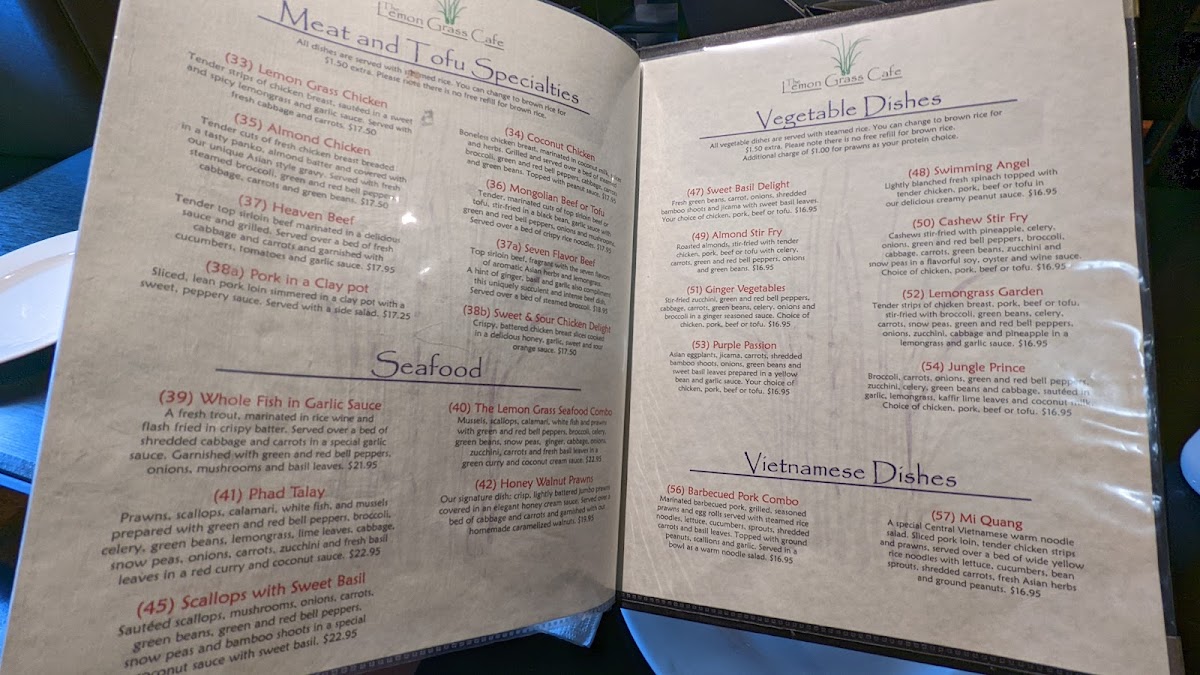 The
Lemon Grass Cafe
Meat and Tofu Specialties
All dishes are served with steamed rice. You can change to brown rice for
$1.50 extra. Please note there is no free refill for brown rice.
(33) Lemon Grass Chicken
Tender strips of chicken breast, sautéed in a sweet
and spicy lemongrass and garlic sauce. Served with
fresh cabbage and carrots. $17.50
(35) Almond Chicken
Tender cuts of fresh chicken breast breaded
in a tasty panko, almond batter and covered with
our unique Asian style gravy. Served with fresh
steamed broccoli, green and red bell peppers,
cabbage, carrots and green beans. $17.50
(37) Heaven Beef
Tender top sirloin beef marinated in a delicious
sauce and grilled. Served over a bed of fresh
cabbage and carrots and garnished with
cucumbers, tomatoes and garlic sauce. $17.95
(38a) Pork in a Clay pot
Sliced, lean pork loin simmered in a clay pot with a
sweet, peppery sauce. Served with a side salad. $17.25
(34) Coconut Chicken
Boneless chicken breast, marinated in coconut milk,
and herbs. Grilled and served over a bed of steamed
broccoli, green and red bell peppers, cabbage, carrots
and green beans. Topped with peanut sauce. $17.95
(36) Mongolian Beef or Tofu
Tender, marinated cuts of top sirloin beef or
tofu, stir-fried in a black bean, garlic sauce with
green and red bell peppers, onions and mushrooms.
Served over a bed of crispy rice noodles. $17.95
(37a) Seven Flavor Beef
Top sirloin beef, fragrant with the seven flavors
of aromatic Asian herbs and lemongrass.
A hint of ginger, basil and garlic also compliment
this uniquely succulent and intense beef dish.
Served over a bed of steamed broccoli. $18.95
(38b) Sweet & Sour Chicken Delight
Crispy, battered chicken breast slices cooked
in a delicious honey, garlic, sweet and sour
orange sauce. $17.50
Seafood
(39) Whole Fish in Garlic Sauce
A fresh trout, marinated in rice wine and
flash fried in crispy batter. Served over a bed of
shredded cabbage and carrots in a special garlic
sauce. Garnished with green and red bell peppers,
onions, mushrooms and basil leaves. $21.95
(41) Phad Talay
Prawns, scallops, calamari, white fish, and mussels
prepared with green and red bell peppers, broccoli,
celery, green beans, lemongrass, lime leaves, cabbage,
snow peas, onions, carrots, zucchini and fresh basil
leaves in a red curry and coconut sauce. $22.95
(45) Scallops with Sweet Basil
Sautéed scallops, mushrooms, onions, carrots,
green beans, green and red bell peppers,
snow peas and bamboo shoots in a special
coconut sauce with sweet basil. $22.95
(40) The Lemon Grass Seafood Combo
Mussels, scallops, calamari, white fish and prawns
with green and red bell peppers, broccoli, celery,
green beans, snow peas, ginger, cabbage, onions,
zucchini, carrots and fresh basil leaves in a
green curry and coconut cream sauce. $22.95
(42) Honey Walnut Prawns
Our signature dish: crisp, lightly battered jumbo prawns
covered in an elegant honey cream sauce. Served over a
bed of cabbage and carrots and garnished with our
homemade caramelized walnuts. $19.95
The
Lemon Grass Cafe
Vegetable Dishes
All vegetable dishes are served with steamed rice. You can change to brown rice for
$1.50 extra. Please note there is no free refill for brown rice.
Additional charge of $1.00 for prawns as your protein choice.
(47) Sweet Basil Delight
Fresh green beans, carrot, onions, shredded
bamboo shoots and jicama with sweet basil leaves.
Your choice of chicken, pork, beef or tofu. $16.95
(49) Almond Stir Fry
Roasted almonds, stir-fried with tender
chicken, pork, beef or tofu with celery,
carrots, green and red bell peppers, onions
and green beans. $16.95
(51) Ginger Vegetables
Stir-fried zucchini, green and red bell peppers,
cabbage, carrots, green beans, celery, onions and
broccoli in a ginger seasoned sauce. Choice of
chicken, pork, beef or tofu. $16.95
(53) Purple Passion
Asian eggplants, jicama, carrots, shredded
bamboo shoots, onions, green beans and
sweet basil leaves prepared in a yellow
bean and garlic sauce. Your choice of
chicken, pork, beef or tofu. $16.95
(48) Swimming Angel
Lightly blanched fresh spinach topped with
tender chicken, pork, beef or tofu in
our delicious creamy peanut sauce. $16.95
(50) Cashew Stir Fry
Cashews stir-fried with pineapple, celery,
onions, green and red bell peppers, broccoli,
cabbage, carrots, green beans, zucchini and
snow peas in a flavorful soy, oyster and wine sauce.
Choice of chicken, pork, beef or tofu. $16.95
(52) Lemongrass Garden
Tender strips of chicken breast, pork, beef or tofu,
stir-fried with broccoli, green beans, celery,
carrots, snow peas, green and red bell peppers,
onions, zucchini, cabbage and pineapple in a
lemongrass and garlic sauce. $16.95
(54) Jungle Prince
Broccoli, carrots, onions, green and red bell peppers,
zucchini, celery, green beans and cabbage, sautéed in
garlic, lemongrass, kaffir lime leaves and coconut milk.
Choice of chicken, pork, beef or tofu. $16.95
Vietnamese Dishes
(56) Barbecued Pork Combo
Marinated barbecued pork, grilled, seasoned
prawns and egg rolls served with steamed rice
noodles, lettuce, cucumbers, sprouts, shredded
carrots and basil leaves. Topped with ground
peanuts, scallions and garlic. Served in a
bowl as a warm noodle salad. $16.95
(57) Mi Quang
A special Central Vietnamese warm noodle
salad. Sliced pork loin, tender chicken strips
and prawns, served over a bed of wide yellow
rice noodles with lettuce, cucumbers, bean
sprouts, shredded carrots, fresh Asian herbs
and ground peanuts. $16.95